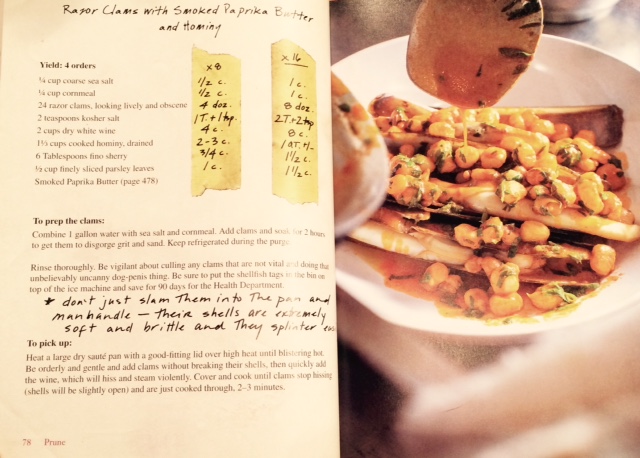 Razor Clams with Smoked Paprika Butter
and Hominy
Yield: 4 orders
¼ cup coarse sea salt
¼ cup cornmeal
24 razor clams, looking lively and obscene
2 teaspoons kosher salt
2 cups dry white wine
1⅓ cups cooked hominy, drained
6 Tablespoons fino sherry
½ cup finely sliced parsley leaves
Smoked Paprika Butter (page 478)
x8
1/2 c.
1/2 c.
4 doz.
1T.+1tsp.
4 c.
2-3 c.
3/4 c.
1 c.
x16
1 c.
1 c.
8 doz.
2T+2tsp
8 c.
1 QT. +/-
1 1/2 c.
1 1/2 c.
To prep the clams:
Combine 1 gallon water with sea salt and cornmeal. Add clams and soak for 2 hours
to get them to disgorge grit and sand. Keep refrigerated during the purge.
Rinse thoroughly. Be vigilant about culling any clams that are not vital and doing that
unbelievably uncanny dog-penis thing. Be sure to put the shellfish tags in the bin on
top of the ice machine and save for 90 days for the Health Department.
* don't just slam them into the pan and
manhandle — their shells are extremely
soft and brittle and they splinter
To pick up:
Heat a large dry sauté pan with a good-fitting lid over high heat until blistering hot.
Be orderly and gentle and add clams without breaking their shells, then quickly add
the wine, which will hiss and steam violently. Cover and cook until clams stop hissing
(shells will be slightly open) and are just cooked through, 2–3 minutes.
78 Prune